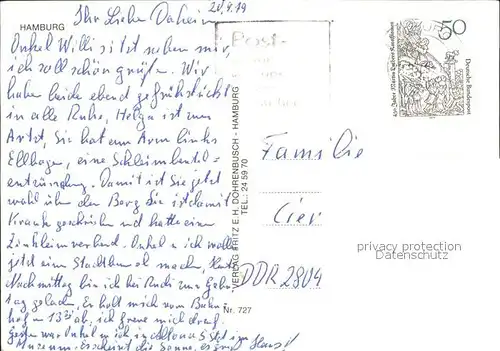 HAMBURG
20/4.79
Ihr Lieben Daheim
Onkel Willi sitzt neben mir,
ich soll schön grüßen. Wir
haben beide ebend gefrühstückt
in aller Ruhe, Helga ist zum
Arzt, Sie hat am Arm links
Ellbogen, eine Schleimbeutel=
entzündung. Damit ist Sie jetzt
wohl über den Berg Sie ist damit
Krank geschrieben und hatte einen
Zinkleimverband. Onkel u ich wollen
jetzt ein Stadtbummel machen,
Nachmittag bin ich bei Rudi zum Gebu
tag geladen. Er holt mich vom Bahn=
hof 13 ab, ich freue mich drauf.
Gestern war Onkel u ich in Altona
Museum. Es scheint die Sonne. Hans!
VERLAG FRITZ E.H. DOHRENBUSCH - HAMBURG
TEL.: 24 59 70
Nr. 727
Post-
50
Deutsche Bundespost
Familie
Cier
DDR 2804
privacy protection
Datenschutz